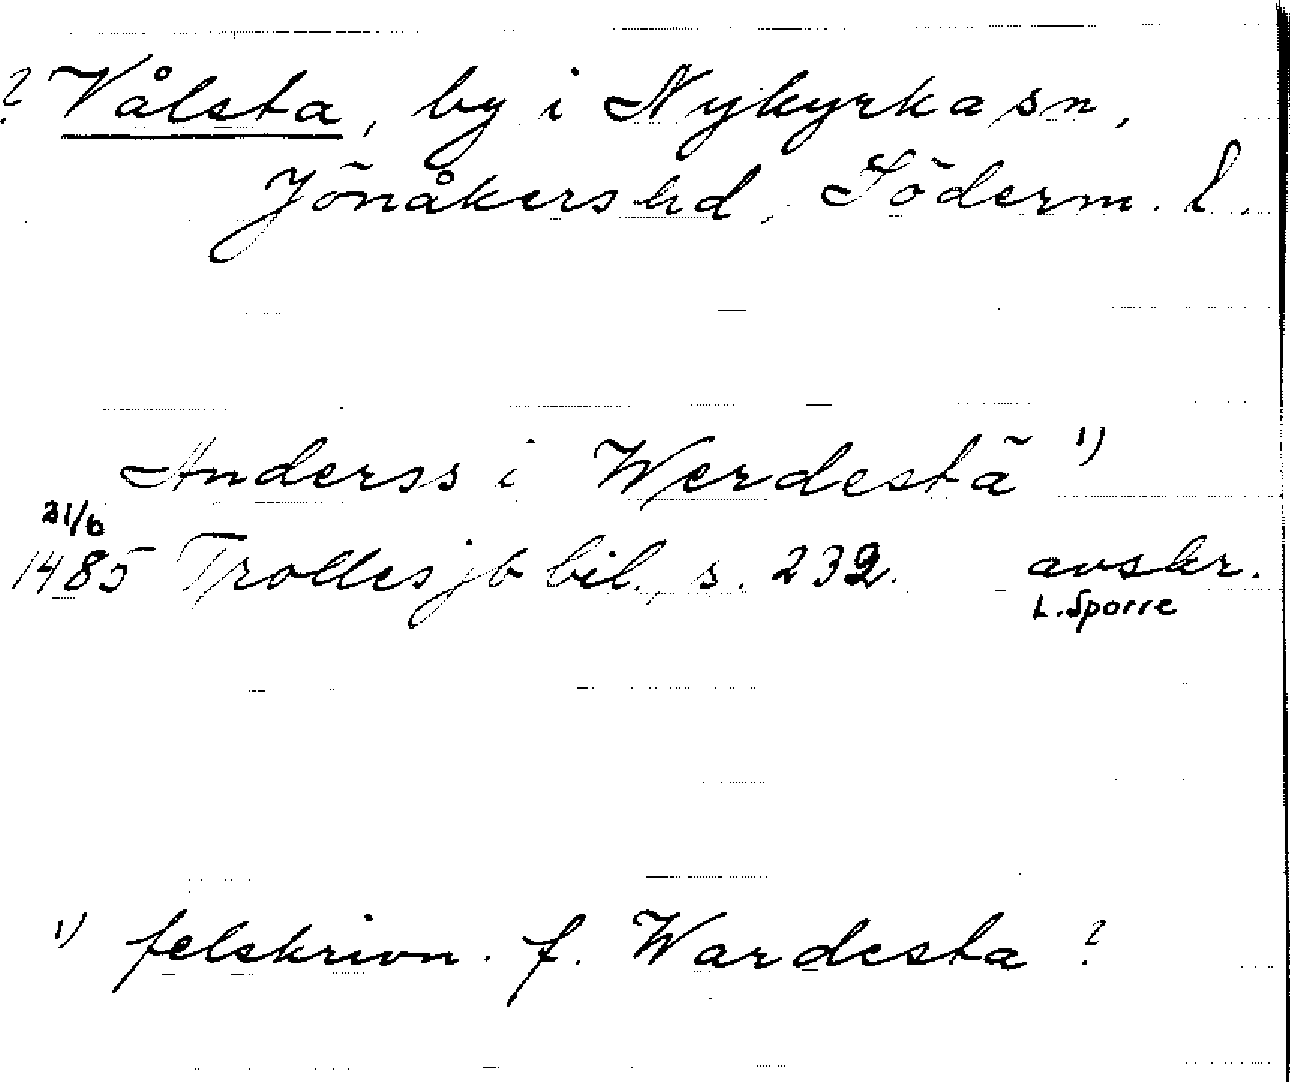 ? Vålsta, by i Nykyrka sn,
Jönåkers hd, Söderm. l.
Anderss i Werdestã 1)
21/6
1485 Trolles jb bil., s. 232. avskr.
L. Sporre
1) felskrivn. f. Wardesta ?